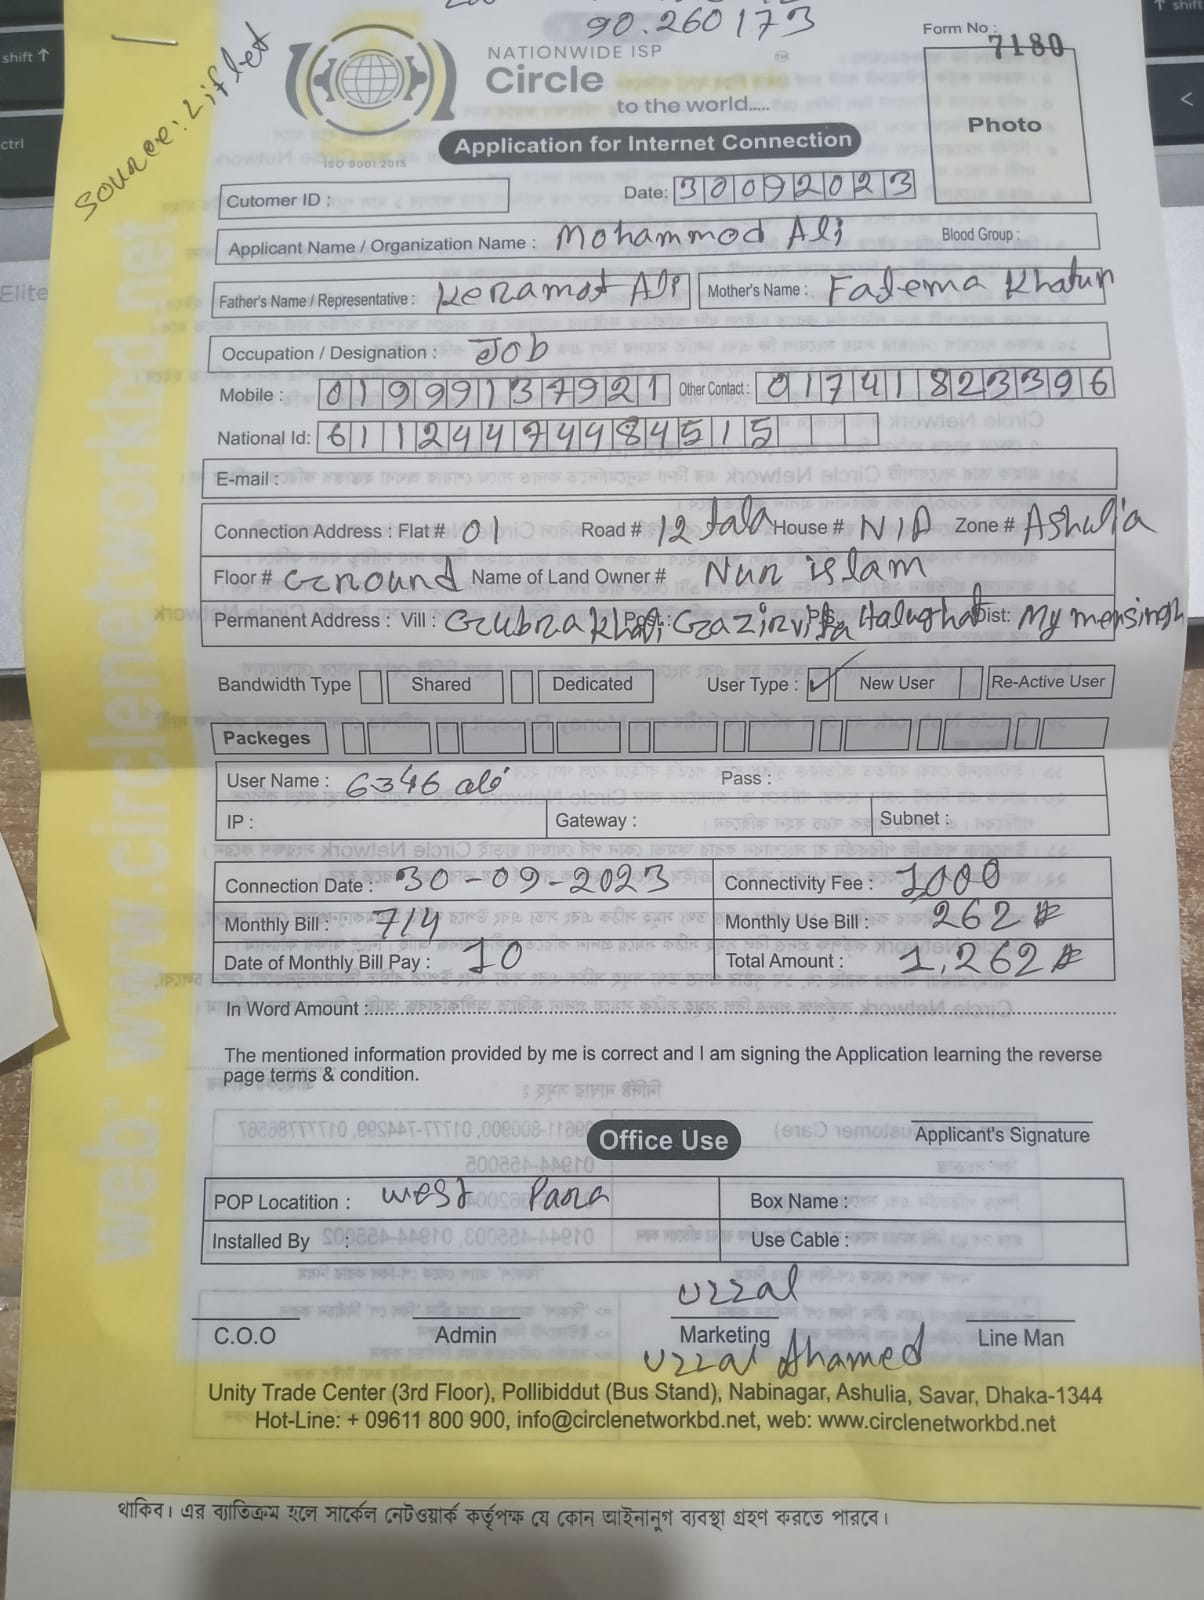 90.260173
Source: Liflet
NATIONWIDE ISP
Circle
to the world.....
ISO 9001:2015
Form No.: 7180
Photo
Application for Internet Connection
Cutomer ID :
Date: 30092023
Applicant Name / Organization Name : Mohammod Ali
Blood Group :
Father's Name / Representative : Keramot Ali
Mother's Name : Fatema Khatun
Occupation / Designation : Job
Mobile : 01999137921
Other Contact : 01741823396
National Id: 61124474484515
E-mail :
Connection Address : Flat # 01 Road # 12 tala House # N/A Zone # Ashulia
Floor # Ground Name of Land Owner # Nur islam
Permanent Address : Vill : Gubrakhali Post : P.S Halughat Dist: Mymensingh
Bandwidth Type Shared Dedicated User Type : ✓ New User Re-Active User
Packeges
User Name : 6346 ali Pass :
IP : Gateway : Subnet :
Connection Date : 30-09-2023 Connectivity Fee : 1000
Monthly Bill : 714 Monthly Use Bill : 262
Date of Monthly Bill Pay : 10 Total Amount : 1,262
In Word Amount :
The mentioned information provided by me is correct and I am signing the Application learning the reverse
page terms & condition.
Applicant's Signature
Office Use
POP Locatition : west Para Box Name :
Installed By : Use Cable :
Uzzal
C.O.O Admin Marketing Line Man
Uzzal Ahamed
Unity Trade Center (3rd Floor), Pollibiddut (Bus Stand), Nabinagar, Ashulia, Savar, Dhaka-1344
Hot-Line: + 09611 800 900, info@circlenetworkbd.net, web: www.circlenetworkbd.net
web: www.circlenetworkbd.net
থাকিব। এর ব্যতিক্রম হলে সার্কেল নেটওয়ার্ক কর্তৃপক্ষ যে কোন আইনানুগ ব্যবস্থা গ্রহণ করতে পারবে।
shift
ctrl
Elite
shift
<